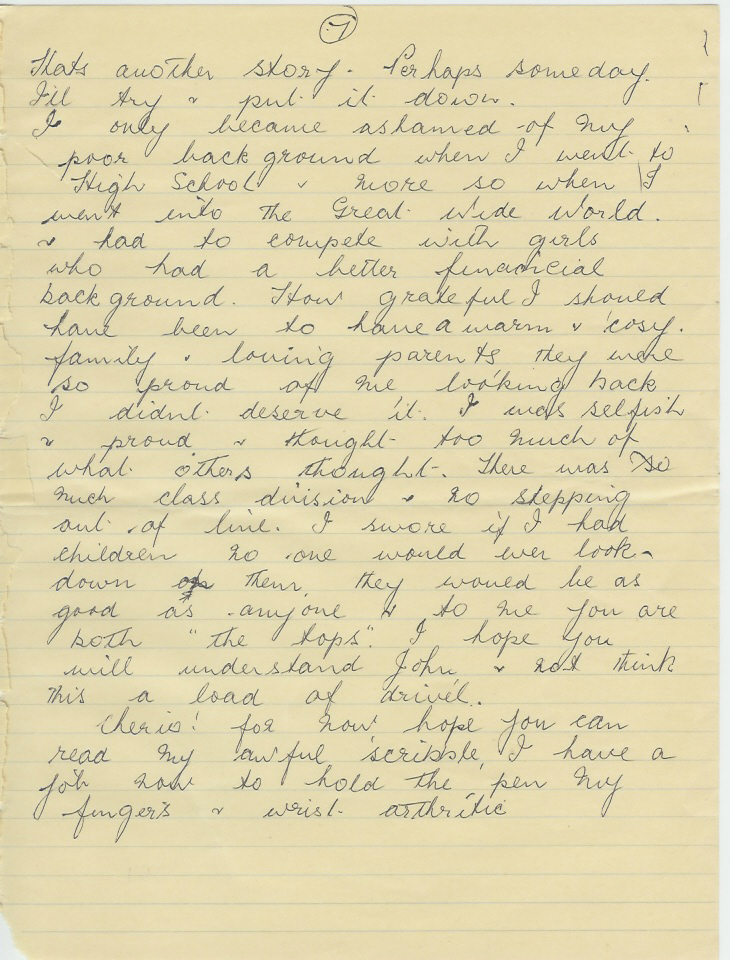 7
Thats another story. Perhaps someday.
I'll try & put it down.
I only became ashamed of my
poor background when I went to
High School & more so when I
went into the Great Wide World.
& had to compete with girls
who had a better financicial
background. How grateful I should
have been to have a warm & cosy.
family & loving parents they were
so proud of me looking back
I didnt deserve it. I was selfish
& proud & thought too much of
what others thought. There was so
much class division & no stepping
out of line. I swore if I had
children no one would ever look
down on them, they would be as
good as anyone & to me you are
both "the tops". I hope you
will understand John, & not think
this a load of drivel.
Cherio! for now, hope you can
read my awful scribble, I have a
job now to hold the pen my
fingers & wrist arthritic